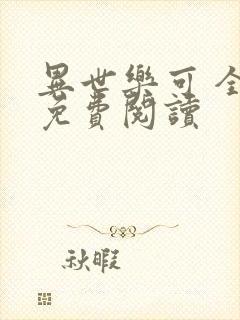 異世樂可 全
免費閱讀
秋暇